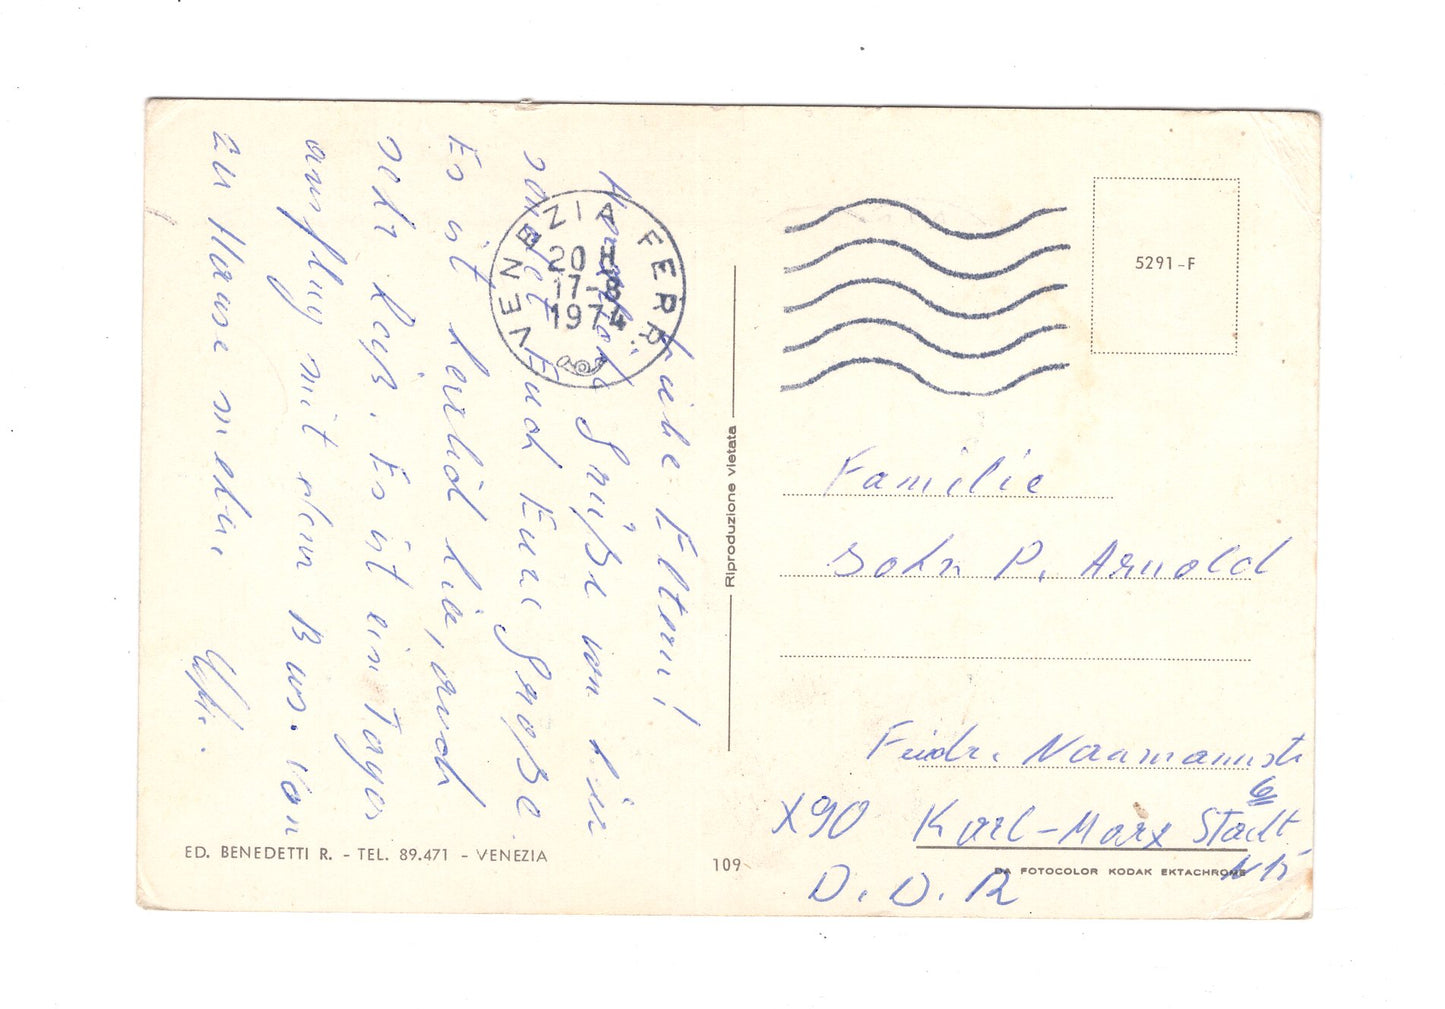 Liebe Eltern!
Herzliche Grüße von hier
sendet Euch Eure Große.
Es ist herrlich hier, auch
sehr heiß. Es ist ein Tages
ausflug mit dem Bus. Von
zu Hause mehr.
VENEZIA FERR.
20 H
17-8
1974
5291-F
Riproduzione vietata
Familie
John P. Arnold
Friedr. Naumannstr
6
X90 Karl-Marx Stadt
D. D. R
ED. BENEDETTI R. - TEL. 89.471 - VENEZIA
109
DA FOTOCOLOR KODAK EKTACHROME